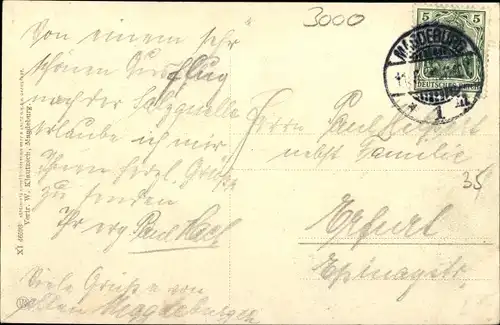 3000
Von einem sehr
schönen Ausflug
nach der Salzquelle
erlaube ich mir
Ihnen herzl. Grüße
zu senden
Ihr erg. Paul
Viele Grüße von
allen Magdeburgern
Herrn Paul
nebst Familie
35
Erfurt
5 5
MAGDEBURG
DEUTSCHES REICH
1
Vertr. W. Klautzsch, Magdeburg.